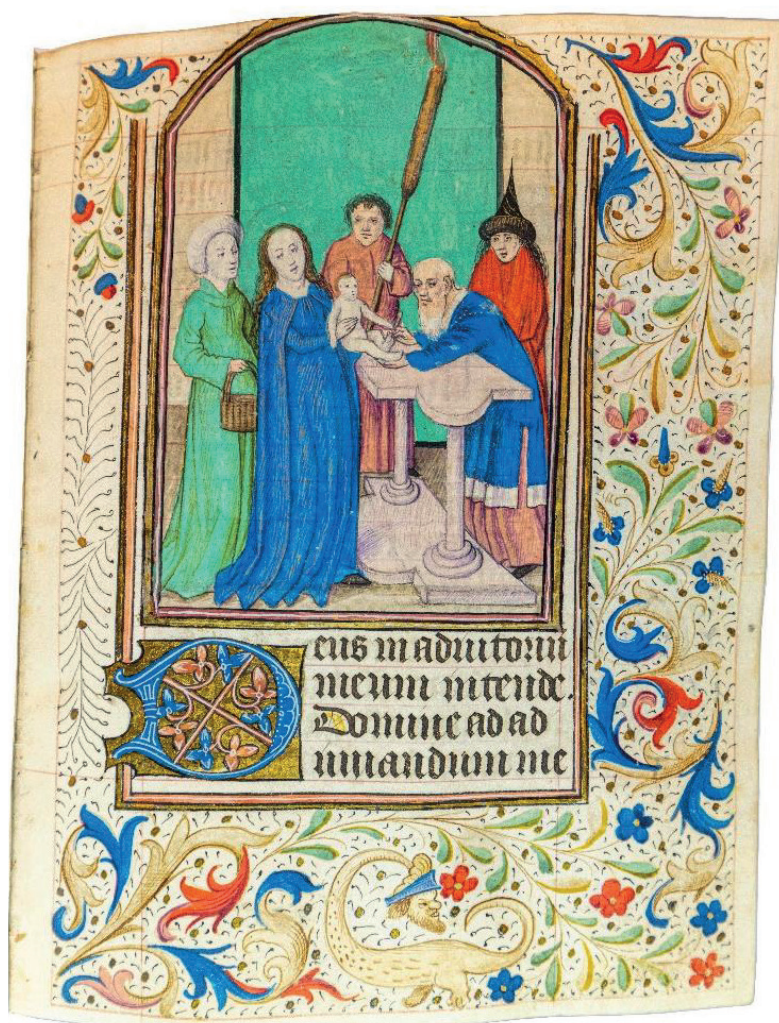 Deus in adiutoriu
meum intende.
Domine ad ad
iuuandum me